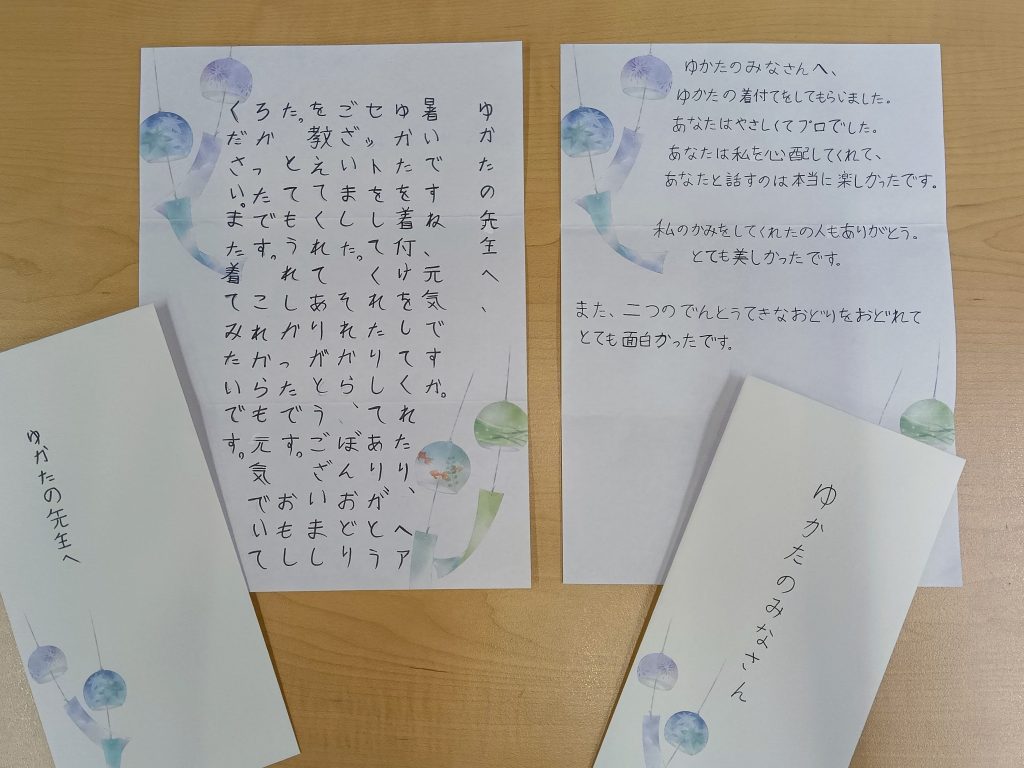 ゆかたの先生へ、
暑いですね、元気ですか。
ゆかたを着付けをしてくれたり、ヘア
セットをしてくれたりしてありがとう
ございました。それから、ぼんおどり
を教えてくれてありがとうございまし
た。とてもうれしかったです。おもし
ろかったです。これからも元気でいて
ください。また着てみたいです。
ゆかたのみなさんへ、
ゆかたの着付てをしてもらいました。
あなたはやさしくてプロでした。
あなたは私を心配してくれて、
あなたと話すのは本当に楽しかったです。
私のかみをしてくれたの人もありがとう。
とても美しかったです。
また、二つのでんとうてきなおどりをおどれて
とても面白かったです。
ゆかたの先生へ
ゆかたのみなさん